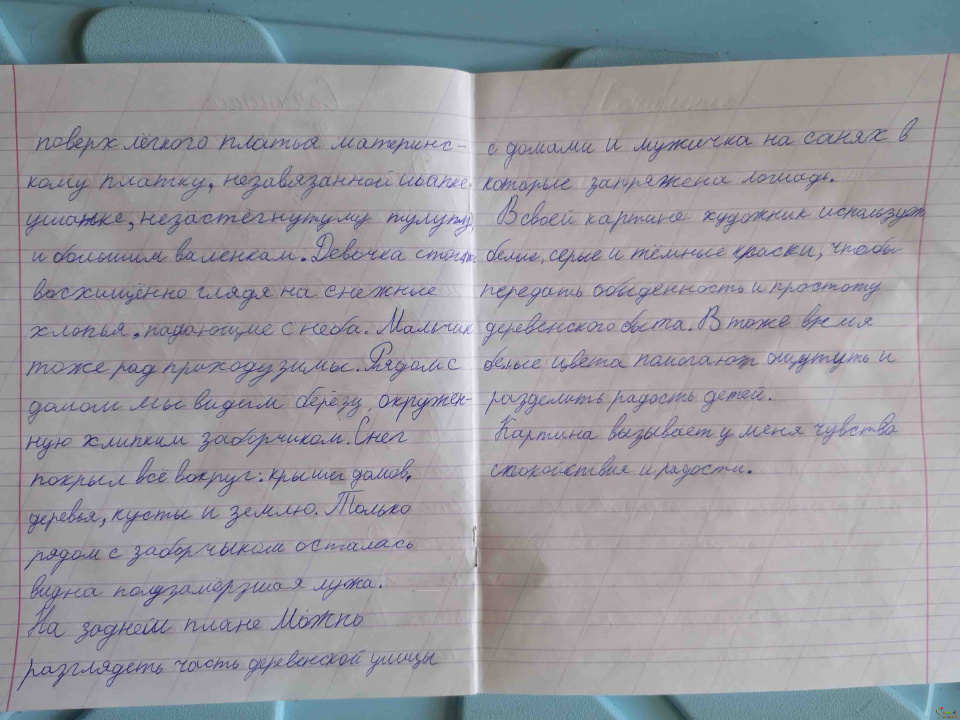 поверх лёгкого платья материнс-
кому платку, незавязанной шапке
ушанке, незастёгнутуму тулупу,
и большим валенкам. Девочка стоит,
восхищённо глядя на снежные
хлопья, падающие с неба. Мальчик
тоже рад приходу зимы. Рядом с
домом мы видим берёзу, окружён-
ную хлипким заборчиком. Снег
покрыл всё вокруг: крыши домов,
деревья, кусты и землю. Только
рядом с заборчыком осталась
видна полузамёрзшая лужа.
На заднем плане можно
разглядеть часть деревенской улицы
с домами и мужичка на санях в
которые запряжена лошадь.
В своей картине художник использует
белые, серые и тёмные краски, чтобы
передать обыденность и простоту
деревенского быта. В тоже время
белые цвета помогают ощутуть и
разделить радость детей.
Картина вызывает у меня чувства
спокойствие и радости.